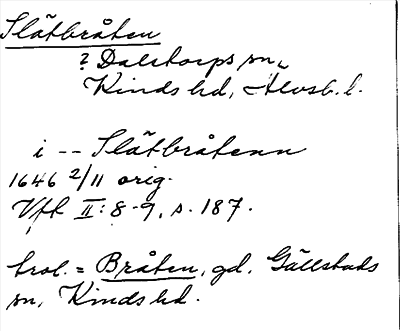 Slätbråten
? Dalstorps sn,
Kinds hd, Älvsb. l.
i -- Slätbråtenn
1646 2/11 orig.
Vfk II: 8-9, s. 187.
trol. = Bråten, gd, Gällstads
sn, Kinds hd.